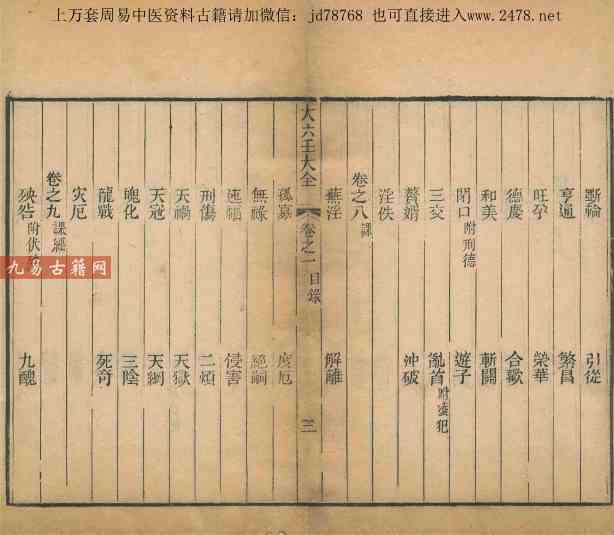 上万套周易中医资料古籍请加微信：jd78768 也可直接进入www.2478.net
斲輪 引從
亨通 繁昌
旺孕 榮華
德慶 合歡
和美 斬關
閉口附刑德 遊子
三交 亂首附犯
贅婿 沖破
淫佚
卷之八課
蕪淫 解離
大六壬大全 卷之一 目錄 三
孤寡 度厄
無祿 絕嗣
迍福 侵害
刑傷 二煩
天禍 天獄
天寇 天網
魄化 三陰
龍戰 死奇
灾厄
卷之九課經
殃咎附伏 九醜
九易古籍网